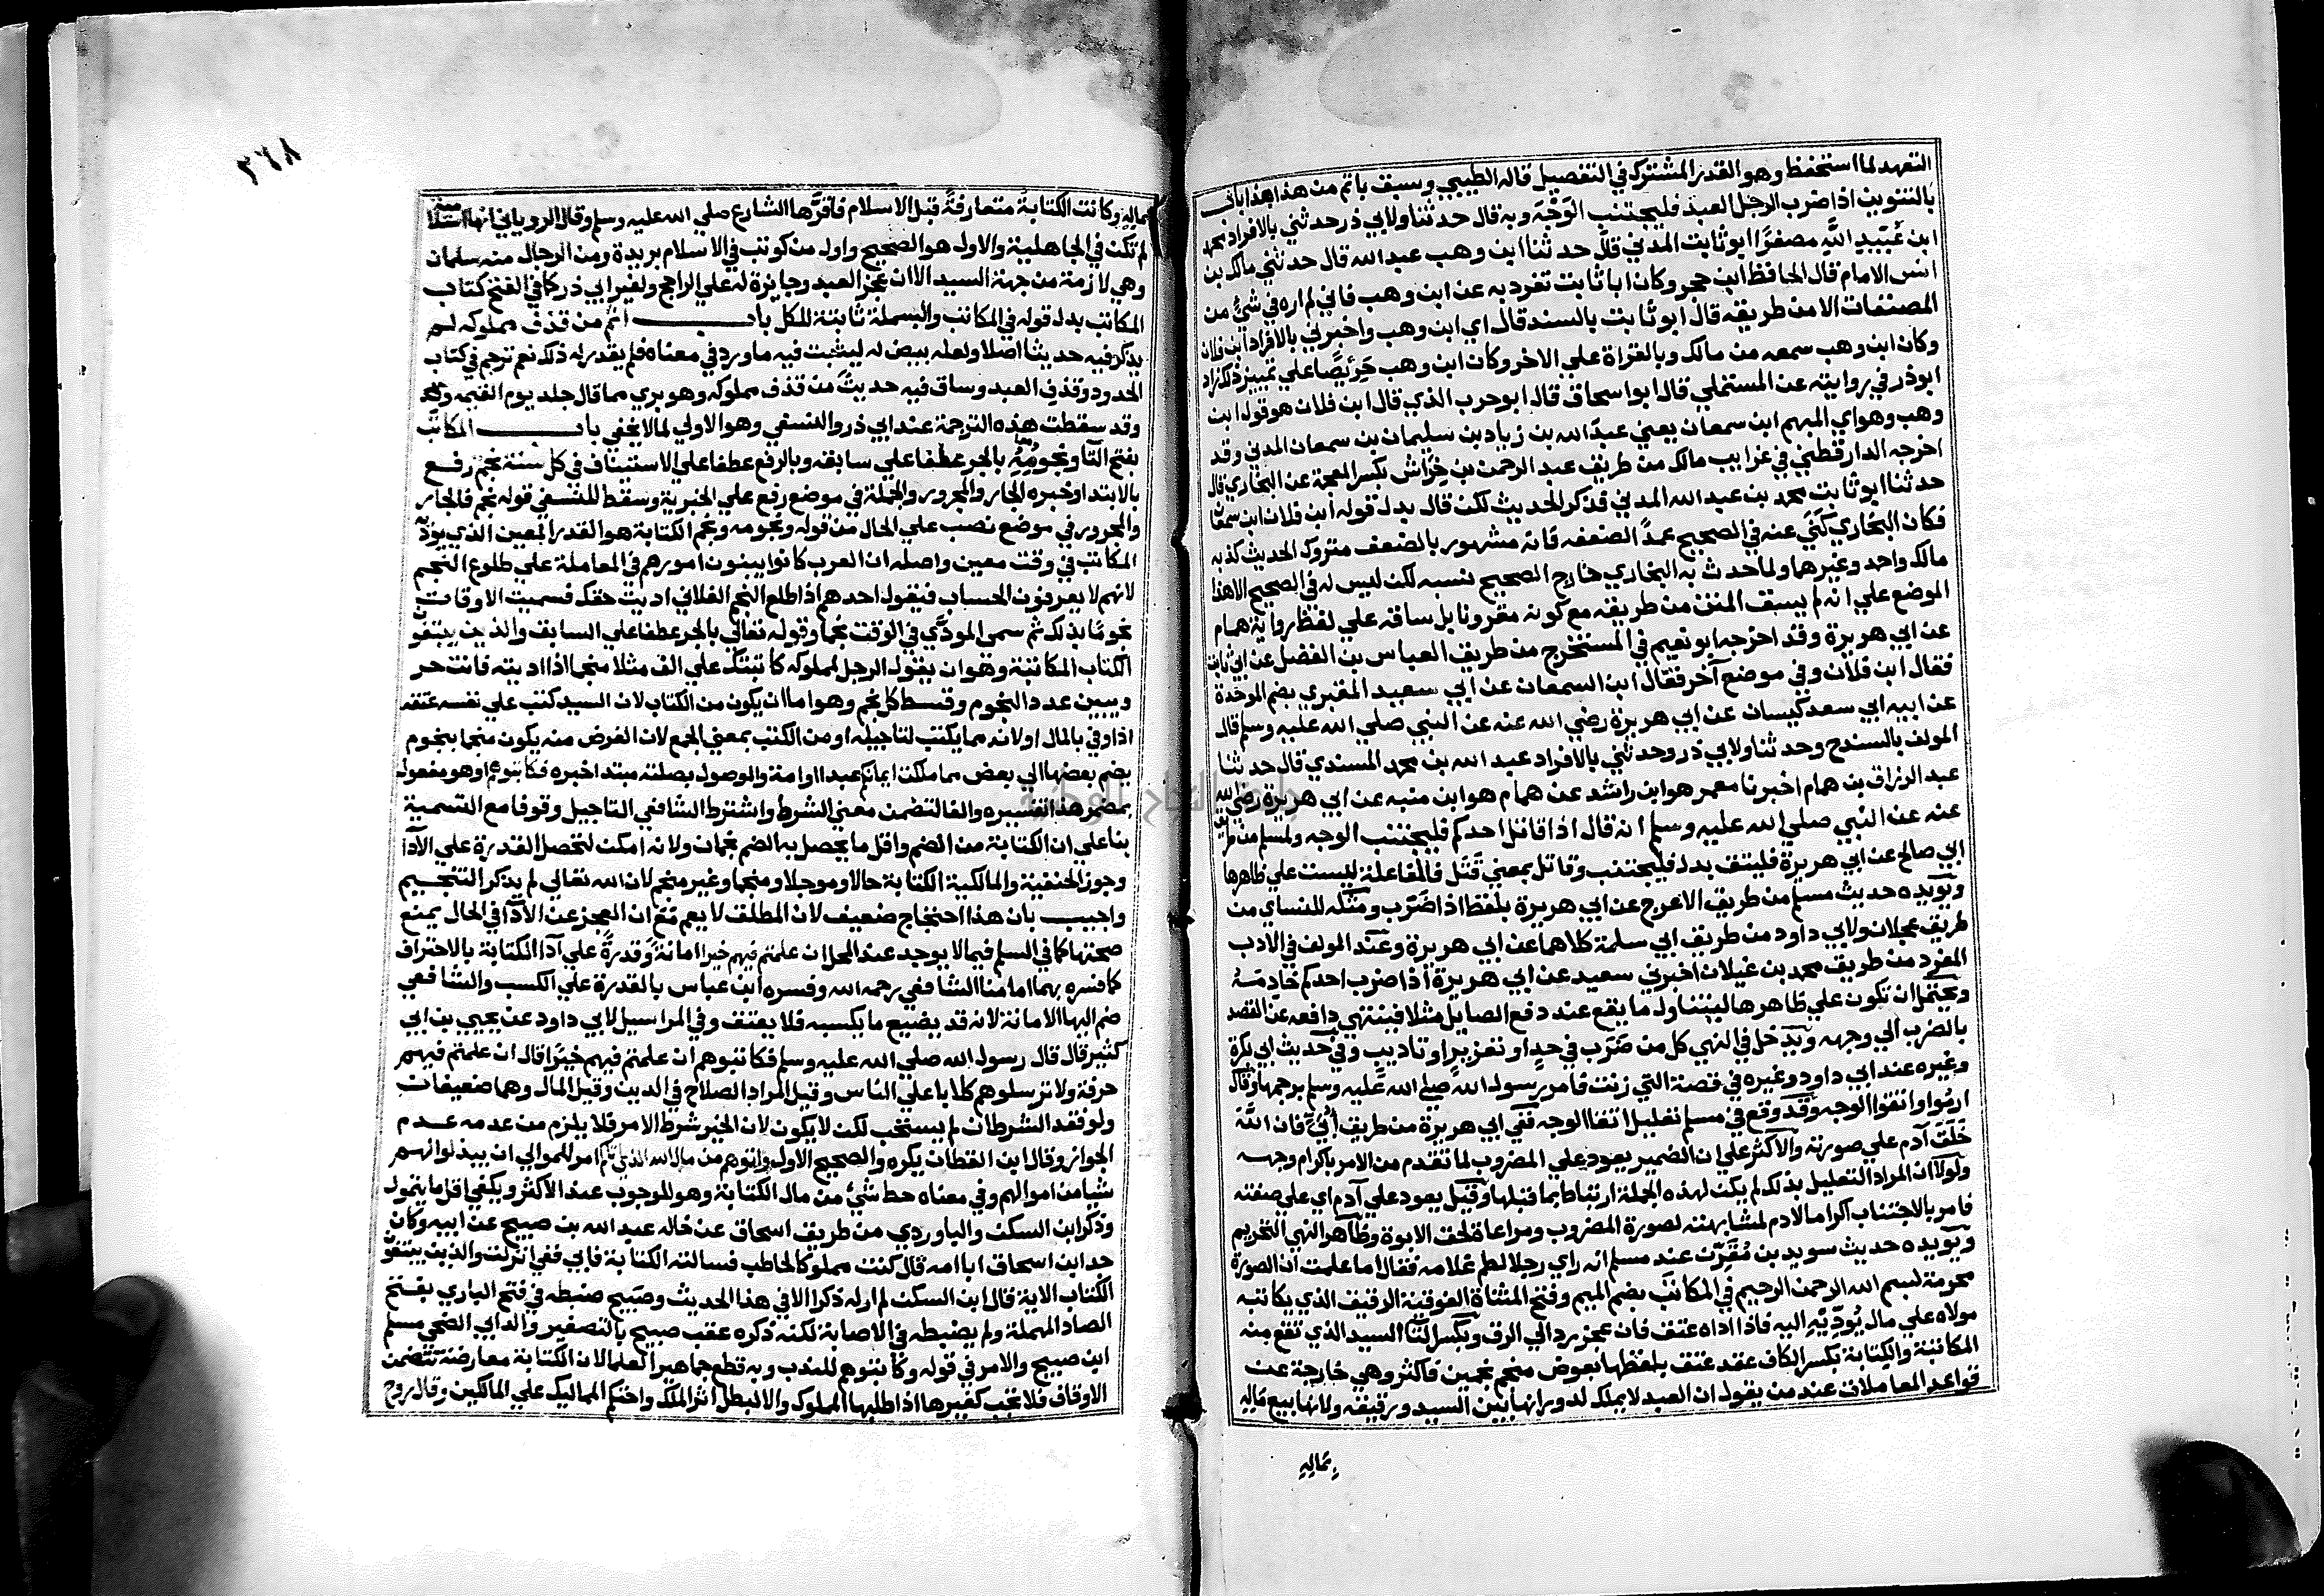 التعهد لما استحفظ وهو القدر المشترك في التفصيل قاله الطيبي وسبق باتم من هذا هذا باب
بالتنوين اذا ضرب الرجل العبد فليجتنب الوجه وبه قال حدثنا ولابي ذر حدثني بالافراد محمد
ابن عبيد الله مصغرا ابو ثابت المدني قال حدثنا ابن وهب عبد الله قال حدثني مالك بن
انس الامام قال الحافظ ابن حجر وكان ابا ثابت تفرد به عن ابن وهب فاني لم اره في شئ من
المصنفات الا من طريقه قال ابو ثابت بالسند قال اي ابن وهب واخبرني بالافراد ابن فلان
وكان ابن وهب سمعه من مالك وبالقراة علي الاخر وكان ابن وهب حريصا علي تمييز ذلك زاد
ابوذر في روايته عن المستملي قال ابو اسحاق قال ابو حرب الذي قال ابن فلان هو قول ابن
وهب وهو اي المبهم ابن سمعان يعني عبد الله بن زياد بن سليمان بن سمعان المدني وقد
اخرجه الدارقطني في غرايب مالك من طريق عبد الرحمن بن خراش بكسر المعجمة عن البخاري قال
حدثنا ابو ثابت محمد بن عبد الله المدني فذكر الحديث لكن قال بدل قوله ابن فلان ابن سمعان
فكان البخاري كني عنه في الصحيح عمدا لضعفه فانه مشهور بالضعف متروك الحديث كذبه
مالك واحد وغيرهما ولما حدث به البخاري خارج الصحيح نسبه لكن ليس له في الصحيح الا هذا
الموضع علي انه لم يسق المتن من طريقه مع كونه مقرونا بل ساقه علي لفظ رواية همام
عن ابي هريرة وقد اخرجه ابو نعيم في المستخرج من طريق العباس بن الفضل عن ابي ثابت
فقال ابن فلان وفي موضع آخر فقال ابن السمعان عن ابي سعيد المقبري بضم الموحدة
عن ابيه ابي سعد كيسان عن ابي هريرة رضي الله عنه عن النبي صلي الله عليه وسلم قال
المولف بالسند ح وحدثنا ولابي ذر وحدثني بالافراد عبد الله بن محمد المسندي قال حدثنا
عبد الرزاق بن همام اخبرنا معمر هو ابن راشد عن همام هو ابن منبه عن ابي هريرة رضي الله
عنه عن النبي صلي الله عليه وسلم انه قال اذا قاتل احدكم فليجتنب الوجه ولمسلم من طريق
ابي صالح عن ابي هريرة فليتق بدل فليجتنب وقاتل بمعني قتل فالمفاعلة ليست علي ظاهرها
ويويده حديث مسلم من طريق الاعرج عن ابي هريرة بلفظ اذا ضرب ومثله للنساي من
طريق عجلان ولابي داود من طريق ابي سلمة كلاهما عن ابي هريرة وعند المولف في الادب
المفرد من طريق محمد بن غيلان اخبرني سعيد عن ابي هريرة اذا ضرب احدكم خادمه
ويحتمل ان تكون علي ظاهرها ليتناول ما يقع عند دفع الصايل مثلا فينتهي دافعه عن القصد
بالضرب الي وجهه ويدخل في النهي كل من ضرب في حد او تعزير او تاديب وفي حديث ابي بكرة
وغيره عند ابي داود وغيره في قصة التي زنت فامر رسول الله صلي الله عليه وسلم برجمها وقال
ارموا واتقوا الوجه وقد وقع في مسلم تعليل اتقا الوجه ففي ابي هريرة من طريق ابي فان الله
خلق آدم علي صورته والاكثر علي ان الضمير يعود علي المضروب لما تقدم من الامر باكرام وجهه
ولولا ان المراد التعليل بذلك لم يكن لهذه الجملة ارتباط بما قبلها وقيل يعود علي آدم اي علي صفته
فامر بالاجتناب اكراما لادم لمشابهته لصورة المضروب ومراعاة لحق الابوة وظاهر النهي التحريم
ويويده حديث سويد بن مقرن عند مسلم انه راي رجلا لطم غلامه فقال اما علمت ان الصورة
محرمة لبسم الله الرحمن الرحيم في المكاتب بضم الميم وفتح المثناة الفوقية الرقيق الذي يكاتبه
مولاه علي مال يوديه اليه فاذا اداه عتق فان عجز رد الي الرق وبكسر التا السيد الذي تقع منه
المكاتبة والكتابة بكسر الكاف عقد عتق بلفظها بعوض منجم نجمين فاكثر وهي خارجة عن
قواعد المعاملات عند من يقول ان العبد لا يملك لدورانها بين السيد ورقيقه ولانها بيع ماله
بماله
٢٦٨
بماله وكانت الكتابة متعارفة قبل الاسلام فاقرها الشارع صلي الله عليه وسلم وقال الروياني انها اسلامية
لم تكن في الجاهلية والاول هو الصحيح واول من كوتب في الاسلام بريرة ومن الرجال منه سلمان
وهي لازمة من جهة السيد الا ان عجز العبد وجايزة له علي الراجح ولغير ابي ذر كما في الفتح كتاب
المكاتب بدل قوله في المكاتب والبسملة ثابتة للكل باب اثم من قذف مملوكه لم
يذكر فيه حديثا اصلا ولعله بيض له ليثبت فيه ما ورد في معناه فلم يقدر له ذلك نعم ترجم في كتاب
الحدود وقذف العبد وساق فيه حديث من قذف مملوكه وهو بري مما قال جلد يوم القيمه
وقد سقطت هذه الترجمة عند ابي ذر والنسفي وهو الاولي لما لا يخفي باب المكاتب
بفتح التا ونجومه بالجر عطفا علي سابقه وبالرفع عطفا علي الاستيناف في كل سنة نجم رفع
بالابتدا وخبره الجار والمجرور والجملة في موضع رفع علي الخبرية وسقط للنسفي قوله نجم فالجار
والمجرور في موضع نصب علي الحال من قوله ونجومه ونجم الكتابة هو القدر المعين الذي يوديه
المكاتب في وقت معين واصله ان العرب كانوا يبنون امورهم في المعاملة علي طلوع النجم
لانهم لا يعرفون الحساب فيقول احدهم اذا طلع النجم الفلاني اديت حقك فسميت الاوقات
نجوما بذلك ثم سمي المودي في الوقت نجما وقوله تعالي بالجر عطفا علي السابق والذين يبتغون
الكتاب المكاتبة وهو ان يقول الرجل لمملوكه كاتبتك علي الف مثلا منجما اذا اديته فانت حر
ويبين عدد النجوم وقسط كل نجم وهو اما ان يكون من الكتاب لان السيد كتب علي نفسه عتقه
اذا وفي بالمال او لانه مما يكتب لتاجيله او من الكتب بمعني الجمع لان العوض منه يكون منجما بنجوم
يضم بعضها الي بعض مما ملكت ايمانكم عبدا او امة والموصول بصلته مبتدا خبره فكاتبوهم او هو مفعول
بمضمر هذا تفسيره والفا لتضمن معني الشرط واشترط الشافعي التاجيل وقوفا مع التسمية
بنا علي ان الكتابة من الضم واقل ما يحصل به الضم نجمان ولانه امكن لتحصل القدرة علي الآدا
وجوز الحنفية والمالكية الكتابة حالا وموجلا ومنجما وغير منجم لان الله تعالي لم يذكر التنجيم
واجيب بان هذا احتجاج ضعيف لان المطلق لا يعم مع ان العجز عن الادا في الحال يمنع
صحتها كما في السلم فيما لا يوجد عند المحل ان علمتم فيهم خيرا امانة وقدرة علي آدا الكتابة بالاحتراف
كما فسره بهما امامنا الشافعي رحمه الله وفسره ابن عباس بالقدرة علي الكسب والشافعي
ضم اليها الامانة لانه قد يضيع ما يكسبه فلا يعتق وفي المراسيل لابي داود عن يحيي بن ابي
كثير قال قال رسول الله صلي الله عليه وسلم فكاتبوهم ان علمتم فيهم خيرا قال ان علمتم فيهم
حرفة ولا ترسلوهم كلابا علي الناس وقيل المراد الصلاح في الدين وقيل المال وهما ضعيفان
ولو فقد الشرطان لم يستحب لكن لا يكون لان الخير شرط الامر فلا يلزم من عدمه عدم
الجواز وقال ابن القطان يكره والصحيح الاول واتوهم من مال الله الذي اتاكم امر للموالي ان يبذلوا لهم
شيا من اموالهم وفي معناه حط شئ من مال الكتابة وهو للوجوب عند الاكثر ويكفي اقل ما يتمول
وذكر ابن السكن والباوردي من طريق اسحاق عن خاله عبد الله بن صبيح عن ابيه وكان
جد ابن اسحاق ابا امه قال كنت مملوكا لحاطب فسالته الكتابة فابي ففي انزلت والذين يبتغون
الكتاب الاية قال ابن السكن لم ار له ذكرا الا في هذا الحديث وصبيح ضبطه في فتح الباري بفتح
الصاد المهملة ولم يضبطه في الاصابة لكنه ذكره عقب صبيح بالتصغير والد ابي الضحي مسلم
ابن صبيح والامر في قوله وكاتبوهم للندب وبه قطع جماهير العلما لان الكتابة معارضة تتضمن
الاوقاف فلا تجب كغيرها اذا طلبها المملوك والا لبطل اثر الملك واحتكم المماليك علي المالكين وقال روح